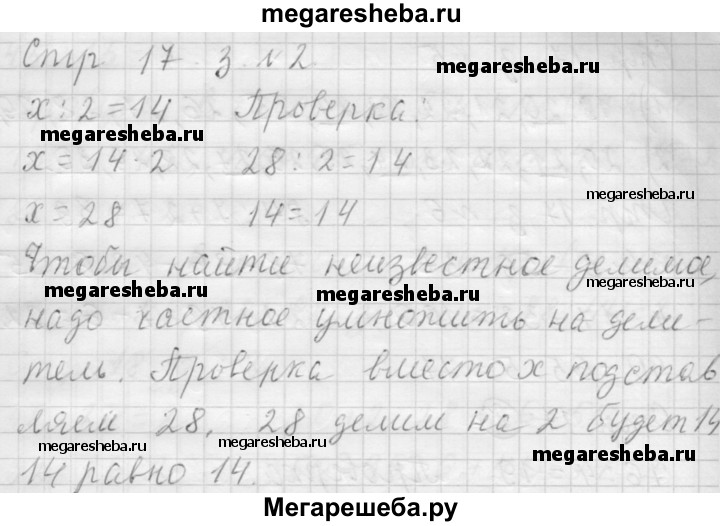 megaresheba.ru
Стр 17 з №2
megaresheba.ru
x:2=14 Проверка:
megaresheba.ru
x=14·2 28:2=14
megaresheba.ru
x=28 14=14
Чтобы найти неизвестное делимое,
megaresheba.ru
megaresheba.ru megaresheba.ru
надо частное умножить на дели-
тель. Проверка вместо x подстав
ляем 28, 28 делим на 2 будет 14
megaresheba.ru megaresheba.ru
megaresheba.ru
14 равно 14.
Мегарешеба.ру